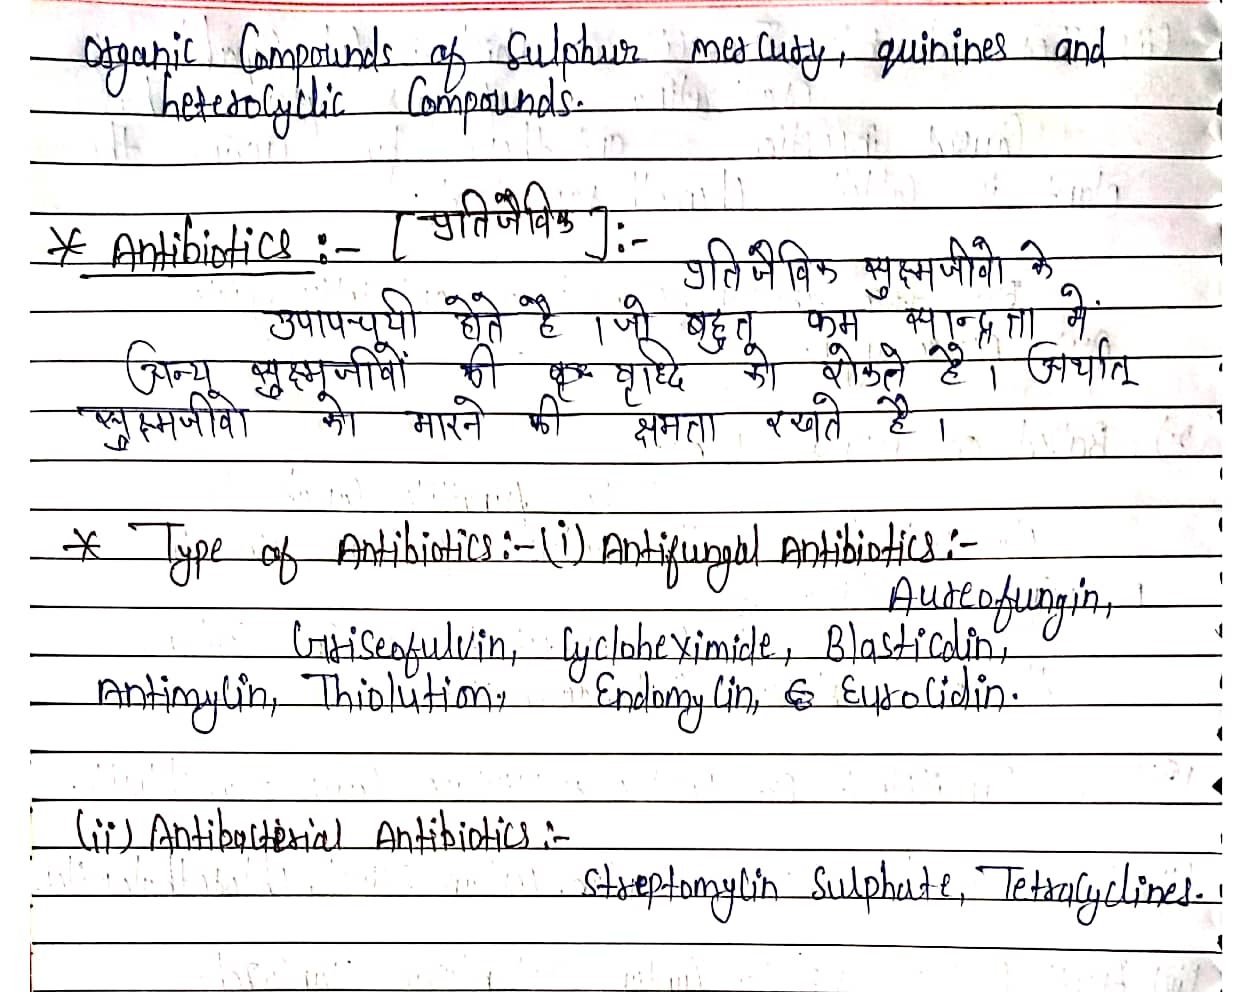 Organic Compounds of Sulphur mercury, quinines and
heterocyclic Compounds.
* Antibiotics :- [प्रतिजैविक] :-
प्रतिजैविक सुक्ष्मजीवो के
उपापच्चयी होते है । जो बहुत कम सान्द्रता में
अन्य सुक्ष्मजीवों की वृध्दि को रोकते है । अर्थात्
सुक्ष्मजीवो को मारने की क्षमता रखते है ।
* Type of Antibiotics :- (i) Antifungal Antibiotics :-
Aureofungin,
Griseofulvin, Cycloheximide, Blasticdin,
Antimycin, Thiolution, Endomycin, & Eurocidin.
(ii) Antibacterial Antibiotics :-
Streptomycin Sulphate, Tetracyclines.